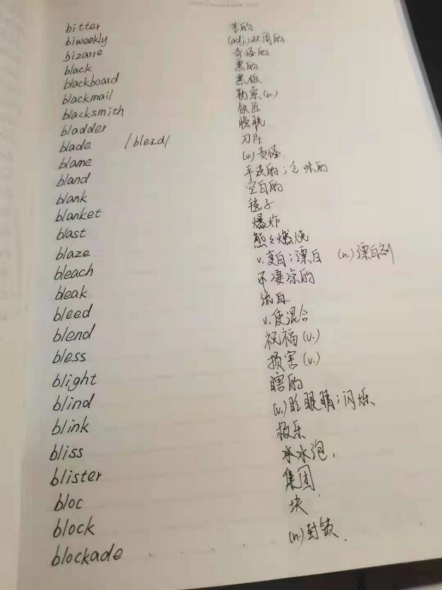 bitter 苦的
biweekly (adj.)双周的
bizarre 奇怪的
black 黑的
blackboard 黑板
blackmail 勒索(n.)
blacksmith 铁匠
bladder 膀胱
blade /bleɪd/ 刀片
blame (v.)责怪
bland 平淡的;乏味的
blank 空白的
blanket 毯子
blast 爆炸
blaze 熊熊燃烧
bleach v.变白;漂白 (n.)漂白剂
bleak 不凄凉的
bleed 流血
blend v.使混合
bless 祝福(v.)
blight 损害(v.)
blind 瞎的
blink (v.)眨眼睛;闪烁
bliss 极乐
blister 水水泡.
bloc 集团
block 块
blockade (n.)封锁